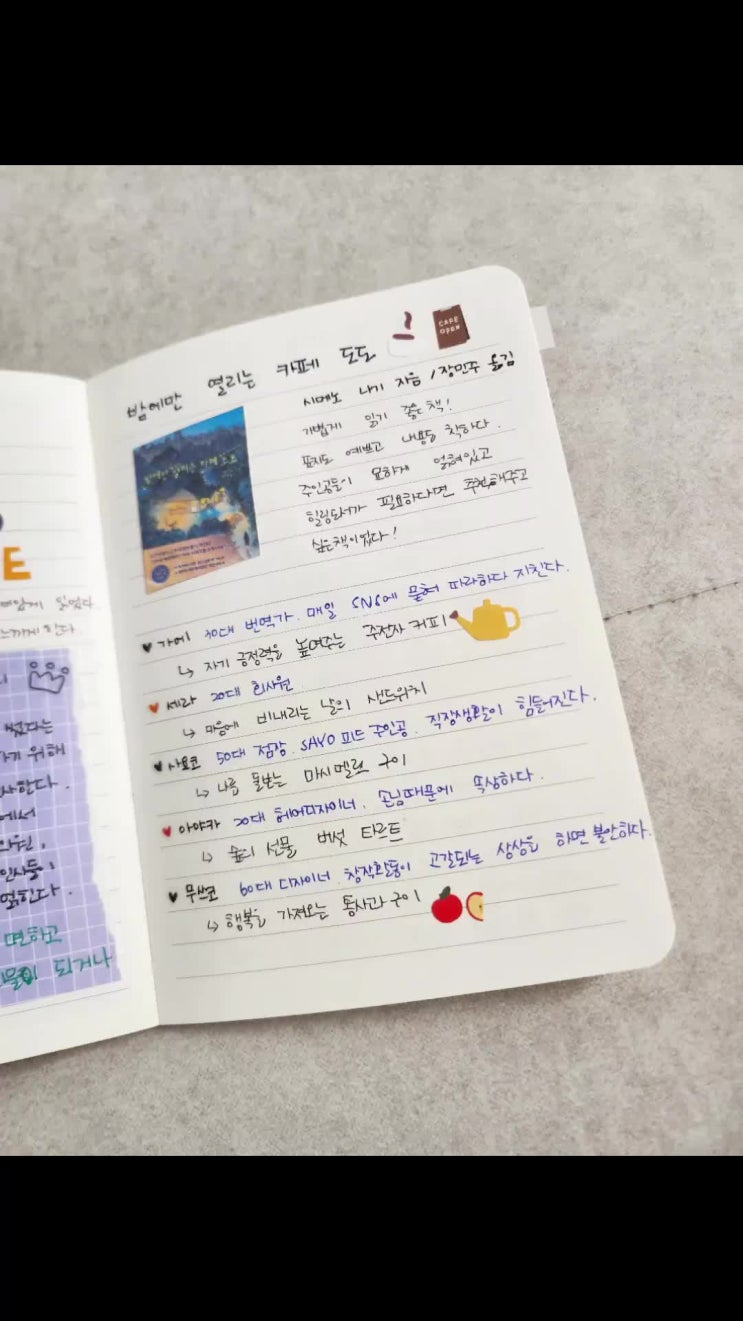 E
쓰다는
기 위해
사한다.
에서
인사들이
얽힌다.
면하고
되거나
밤에만 열리는 카페 도도
CAFE
OPEN
시메노 나기 지음 / 장민주 옮김
가볍게 읽기 좋은 책!
표지도 예쁘고 내용도 착하다.
주인공들이 묘하게 얽혀있고
힐링도서가 필요하다면 추천해주고
싶은 책이었다!
♥ 가에 30대 번역가. 매일 SNS에 묻혀 따라하다 지친다.
↳ 자기 긍정력을 높여주는 주전자 커피
♥ 세라 20대 회사원
↳ 마음에 비내리는 날의 샌드위치
♥ 사요코 50대 점장. SAYO 피드 주인공. 직장생활이 힘들어진다.
↳ 나를 돌보는 마시멜로 구이
♥ 아야카 20대 헤어디자이너. 손님때문에 속상하다.
↳ 숲의 선물 버섯 타르트
♥ 무쓰코 60대 디자이너. 창작활동이 고갈되는 상상을 하면 불안하다.
↳ 행복을 가져오는 통사과 구이